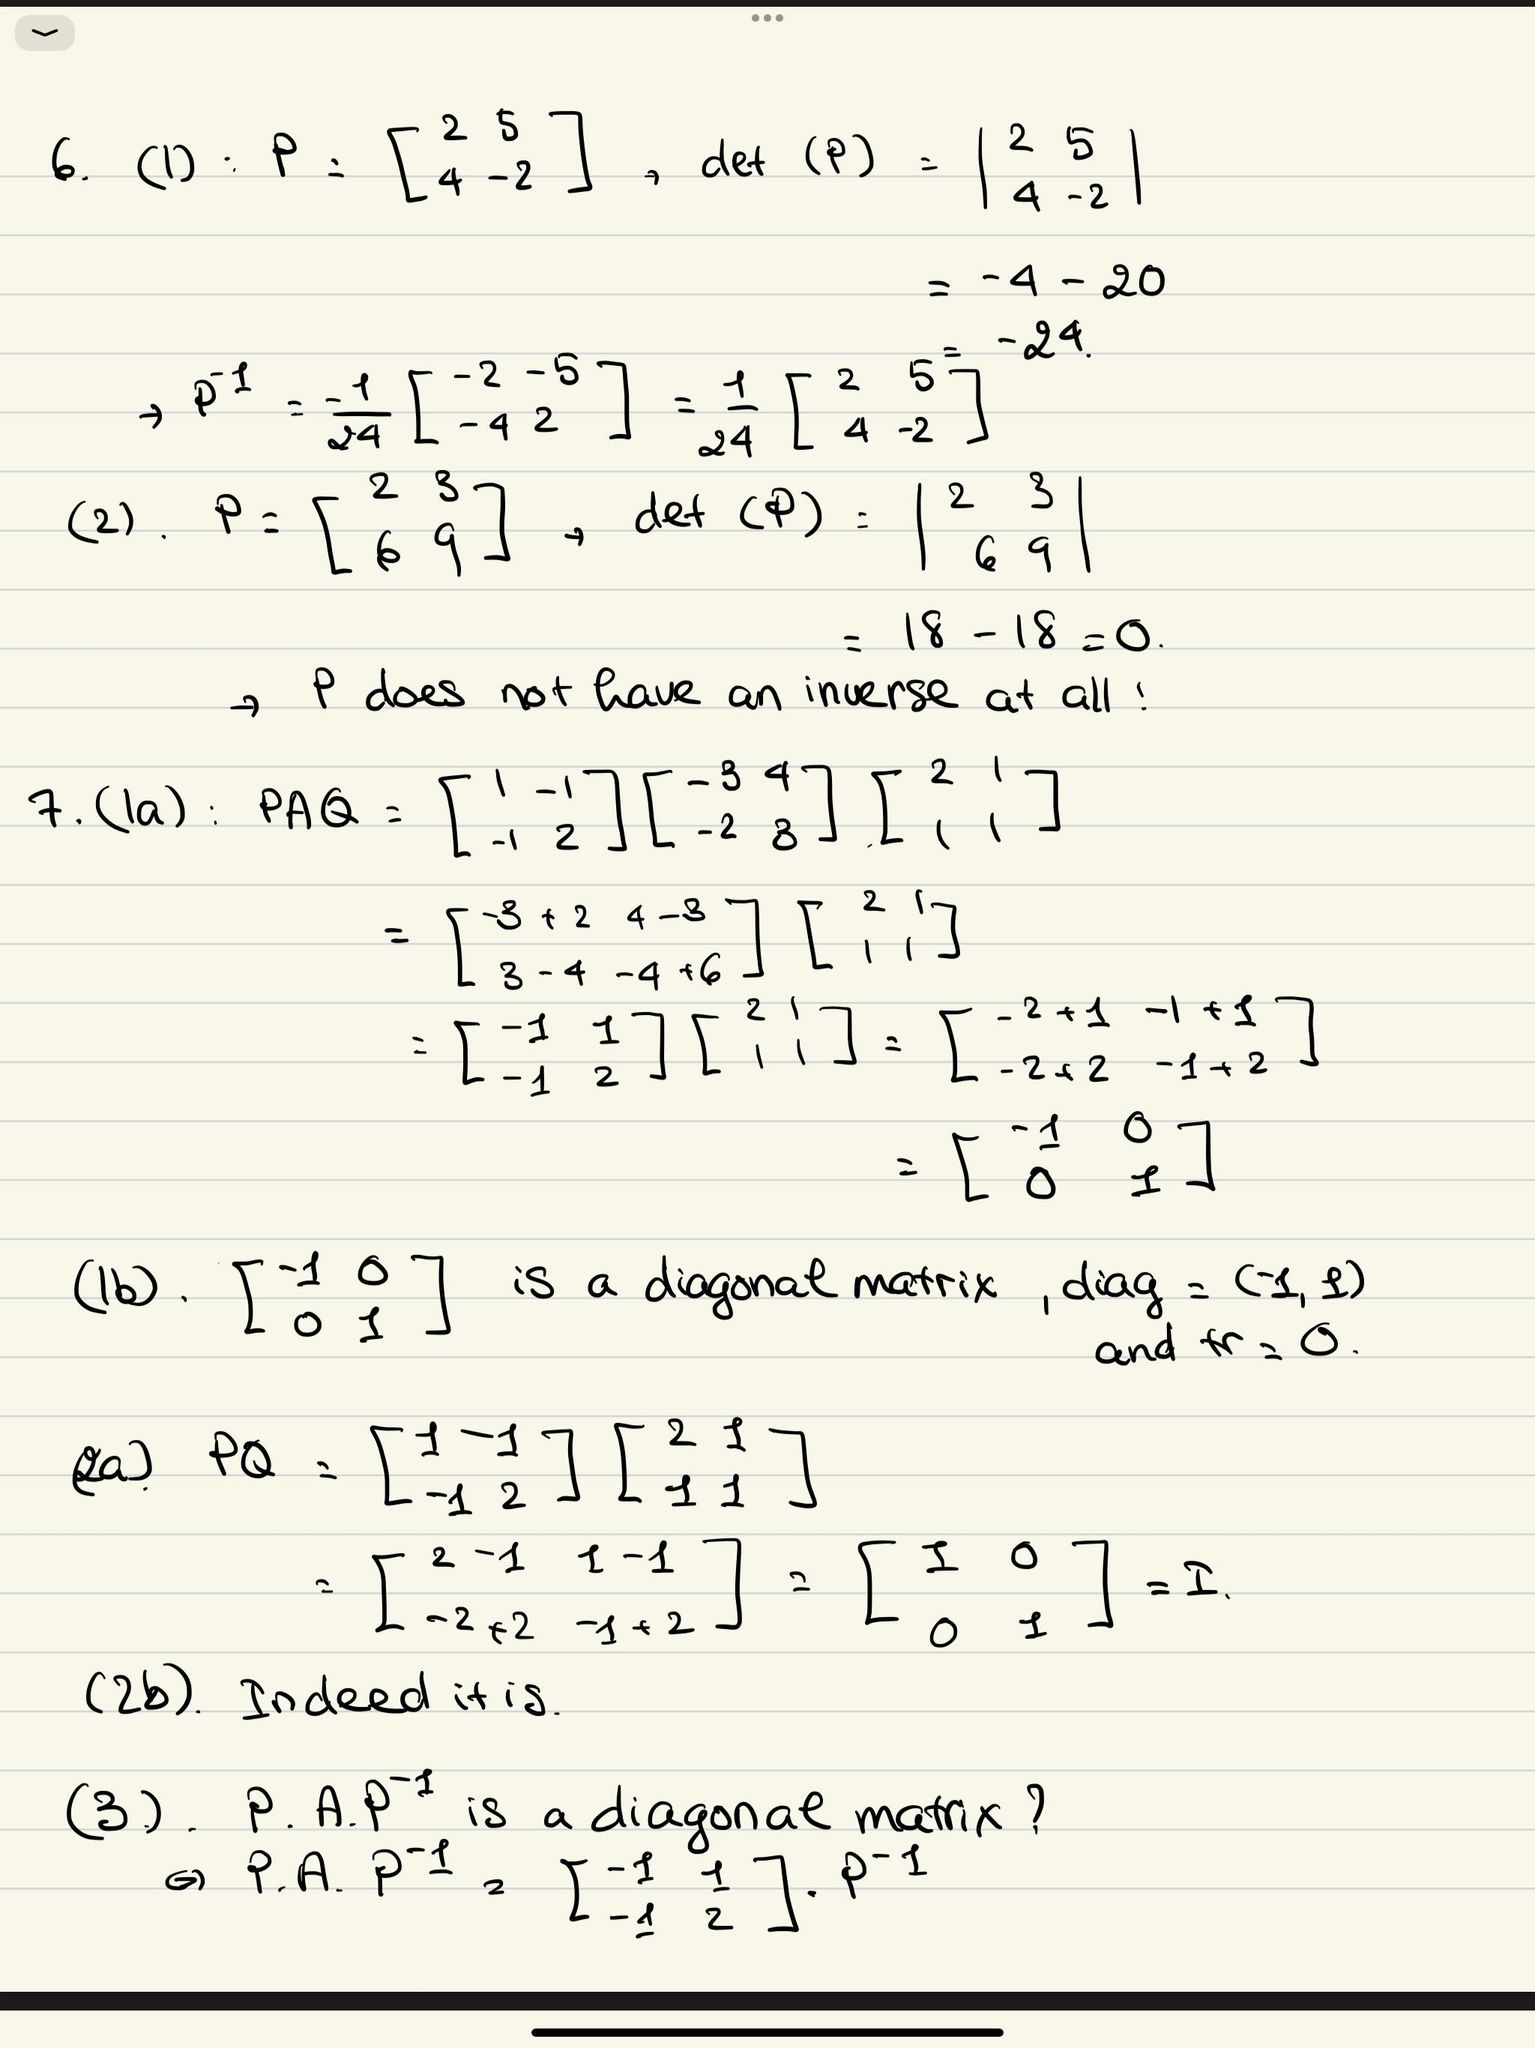 6. (1) : P = [ 2 5 ; 4 -2 ] → det (P) = | 2 5 ; 4 -2 |
= -4 - 20
= -24.
→ P⁻¹ = -1/24 [ -2 -5 ; -4 2 ] = 1/24 [ 2 5 ; 4 -2 ]
(2). P = [ 2 3 ; 6 9 ] → det (P) = | 2 3 ; 6 9 |
= 18 - 18 = 0.
→ P does not have an inverse at all!
7. (1a) : PAQ = [ 1 -1 ; -1 2 ] [ -3 4 ; -2 3 ] . [ 2 1 ; 1 1 ]
= [ -3 + 2 4 - 3 ; 3 - 4 -4 + 6 ] [ 2 1 ; 1 1 ]
= [ -1 1 ; -1 2 ] [ 2 1 ; 1 1 ] = [ -2 + 1 -1 + 1 ; -2 + 2 -1 + 2 ]
= [ -1 0 ; 0 1 ]
(1b). [ -1 0 ; 0 1 ] is a diagonal matrix, diag = (-1, 1)
and tr = 0.
(2a). PQ = [ 1 -1 ; -1 2 ] [ 2 1 ; 1 1 ]
= [ 2 - 1 1 - 1 ; -2 + 2 -1 + 2 ] = [ 1 0 ; 0 1 ] = I.
(2b). Indeed it is.
(3). P. A. P⁻¹ is a diagonal matrix?
⇔ P. A. P⁻¹ = [ -1 1 ; -1 2 ] . P⁻¹